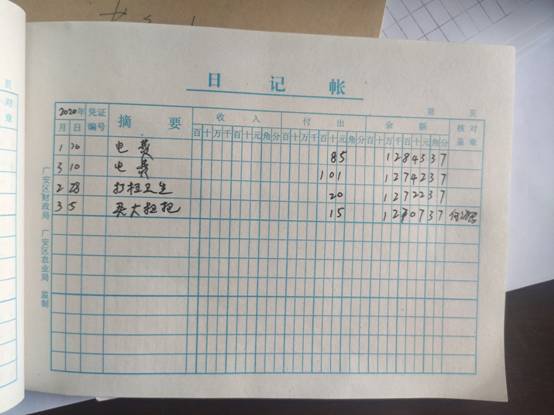 日记帐
第 页
2020年 凭证 摘要 收入 付出 余额 核对
月 日 编号 百十万千百十元角分 百十万千百十元角分 百十万千百十元角分 盖章
1 20 电费 85 1284337
3 10 电费 101 1274237
2 28 打扫卫生 20 1272237
3 5 买大扫把 15 1270737
广安区财政局 广安区农业局 监制
对
章